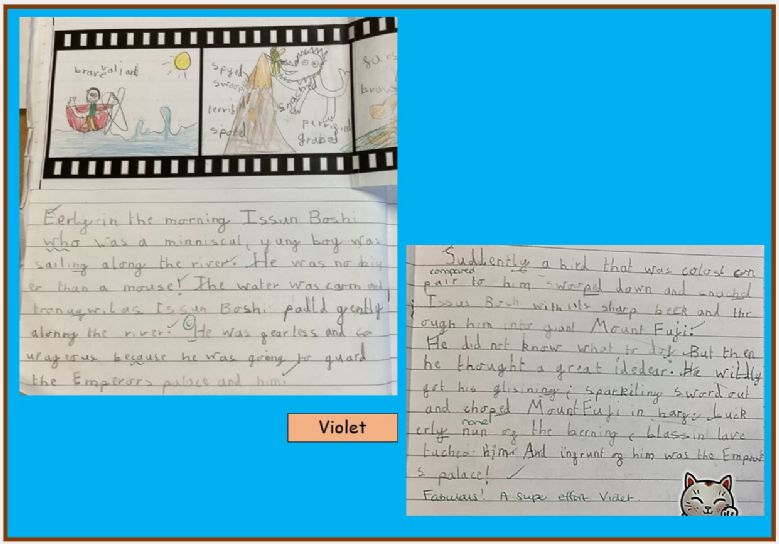 brave valiant
spyed
swoop
terrifi
spoted
snached
grabed
brav
Eerly in the morning Issun Boshi
who was a minniscul, yung boy was
sailing along the river. He was no big
er than a mouse! The water was carm and
Issun Boshi padld gently
along the river. He was fearless and co
urageous because he was going to guard
the Emperors palace and him.
Violet
Suddently a bird that was colosl
compared
pair to him swoped down and snached
Issun Bosh with its sharp beck and thr
ough him into giant Mount Fuji.
He did not know what to do. But then
he thought a great idedear. He wildly
got his glisining, sparkiling sword out
and choped Mount Fuji in harf. Luck
none
erly nun of the berning, blassin lave
tuched him. And infrunt of him was the Empror
s palace!
Fabulous! A super effort Violet.